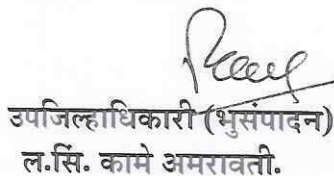 उपजिल्हाधिकारी (भुसंपादन)
ल.सिं. कामे अमरावती.